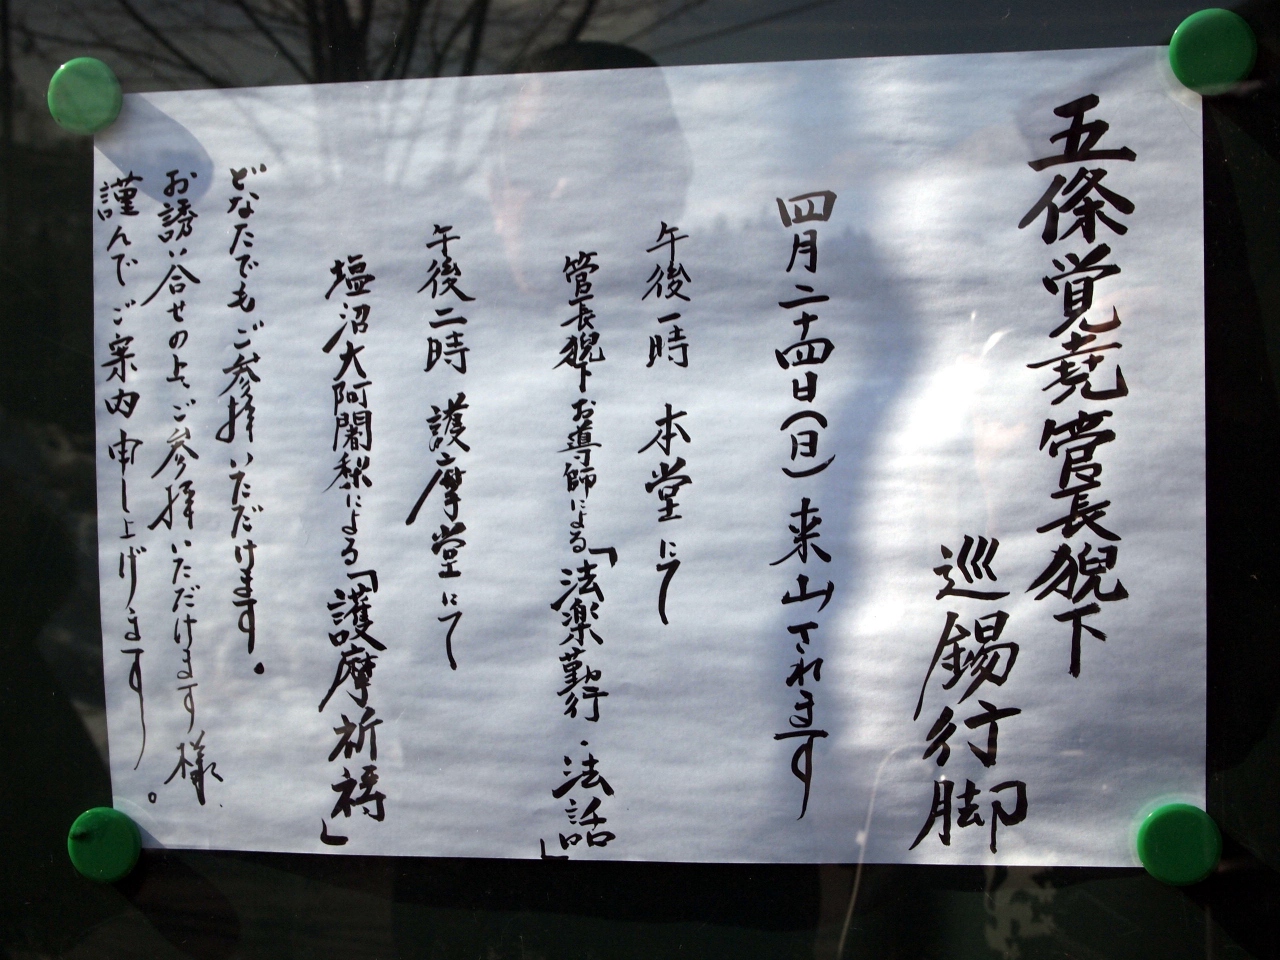 五條覚堯管長猊下
巡錫行脚
四月二十四日(日)来山されます
午後一時　本堂にて
管長猊下お導師による「法楽勤行・法話」
午後二時　護摩堂にて
塩沼大阿闍梨による「護摩祈祷」
どなたでもご参拝いただけます。
お誘い合せの上、ご参拝いただけます様、
謹んでご案内申し上げます。